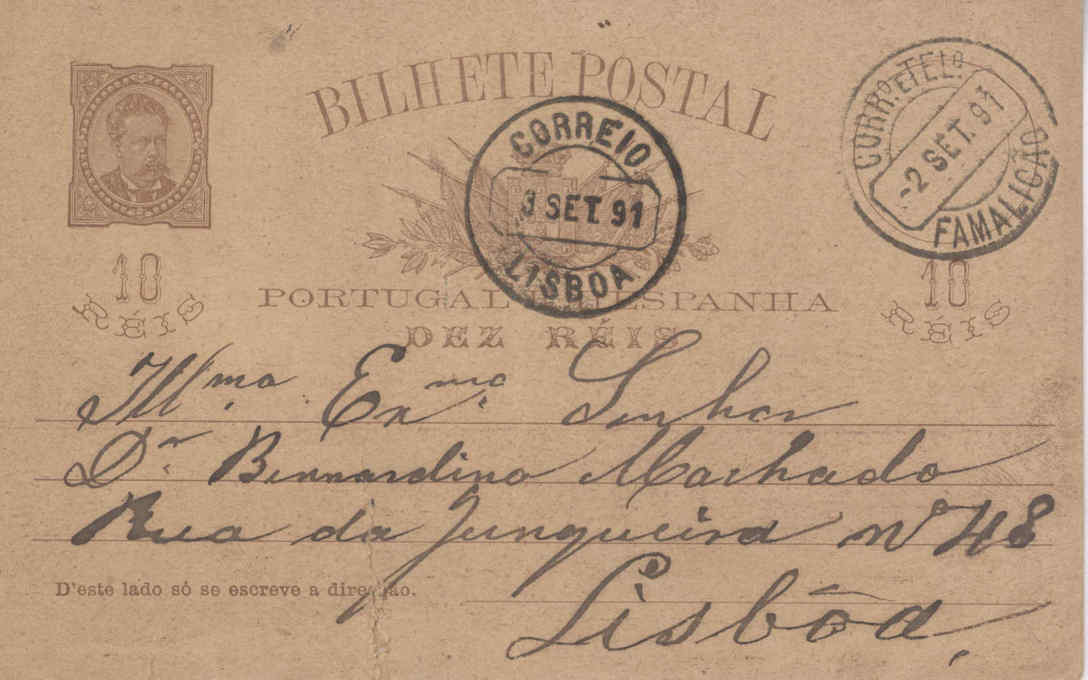 BILHETE POSTAL
CORRº. E TELº.
-2 SET. 91
FAMALICÃO
CORREIO
3 SET. 91
LISBOA
10
RÉIS
10
RÉIS
PORTUGAL E HESPANHA
DEZ RÉIS
Ill.ma Ex.ma Senhor
Dr. Bernardino Machado
Rua da Junqueira nº 48
D'este lado só se escreve a direcção.
Lisbôa,